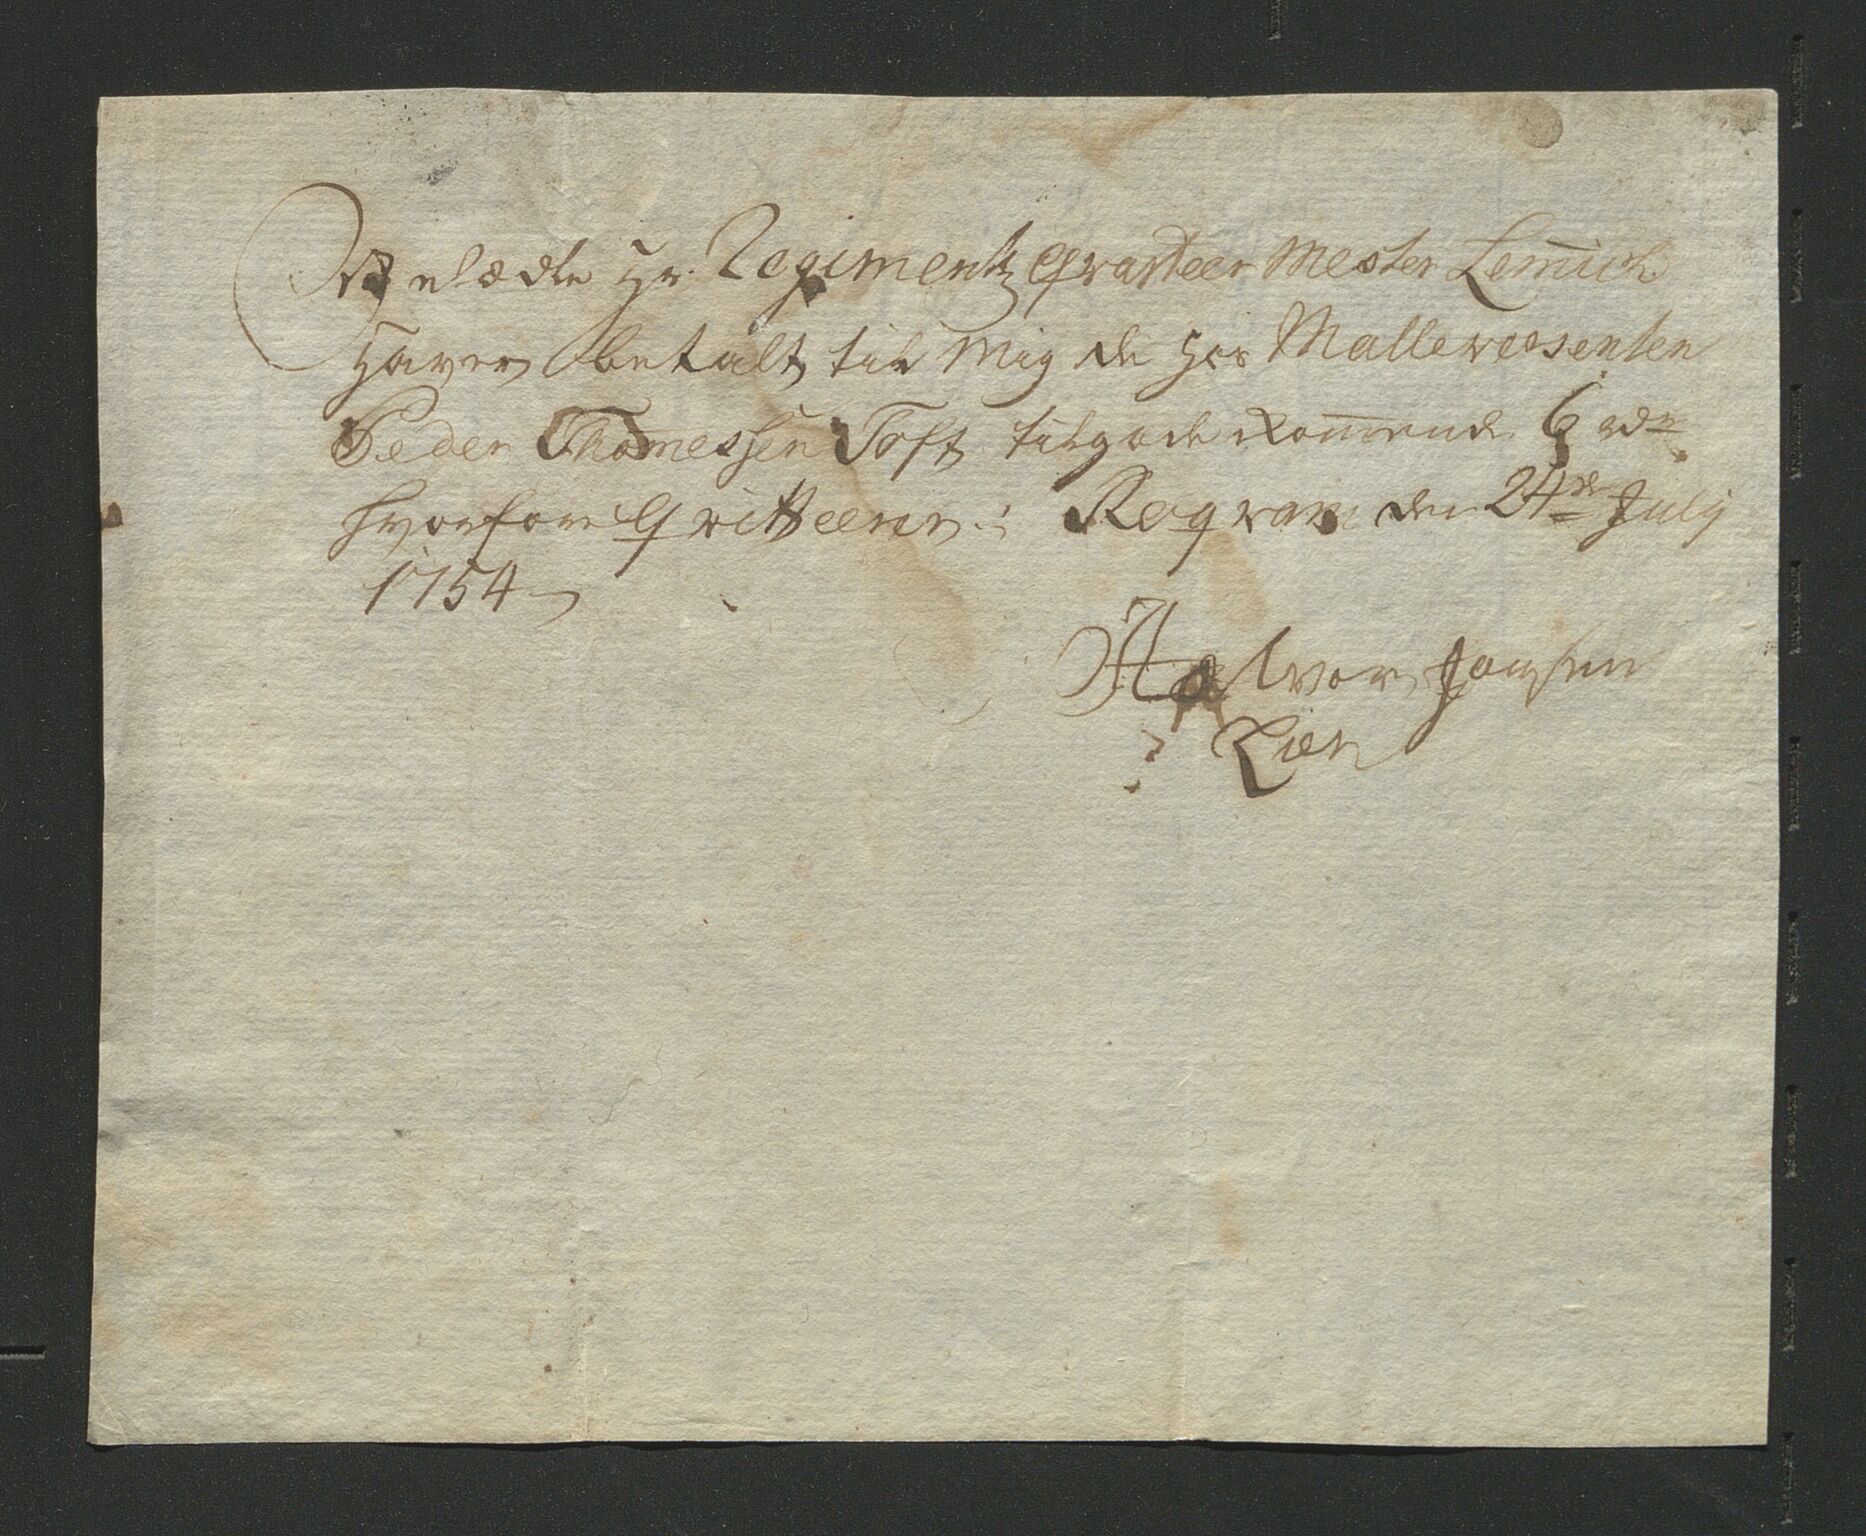 Velædle Hr. Regimentz Qvarteer Mester Lem̄ich
Haver betalt til Mig de hos Malleveesenten
Peder Thomessen Toft tilgode Kom̄ende 6 rdr
hvorfore Qvitteerer Rogvam den 24de July
1754
Halvor Jonsen
Lien